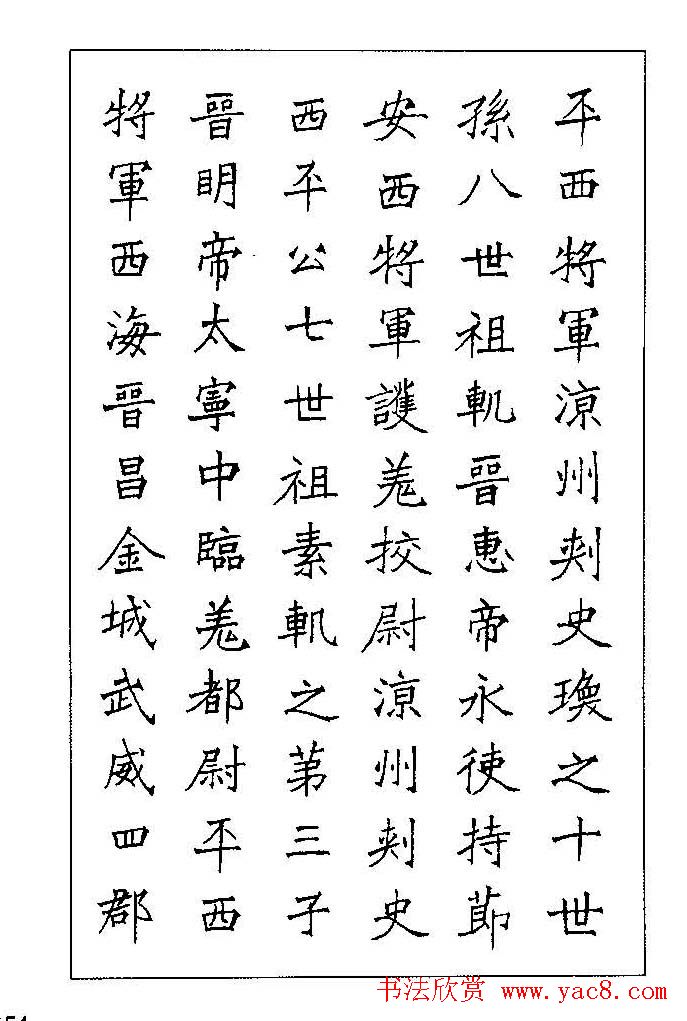 平西將軍涼州刾史瓊之十世
孫八世祖軌晉惠帝永使持節
安西將軍護羗挍尉涼州刾史
西平公七世祖素軌之第三子
晉明帝太寧中臨羗都尉平西
將軍西海晉昌金城武威四郡
书法欣赏 www.yac8.com